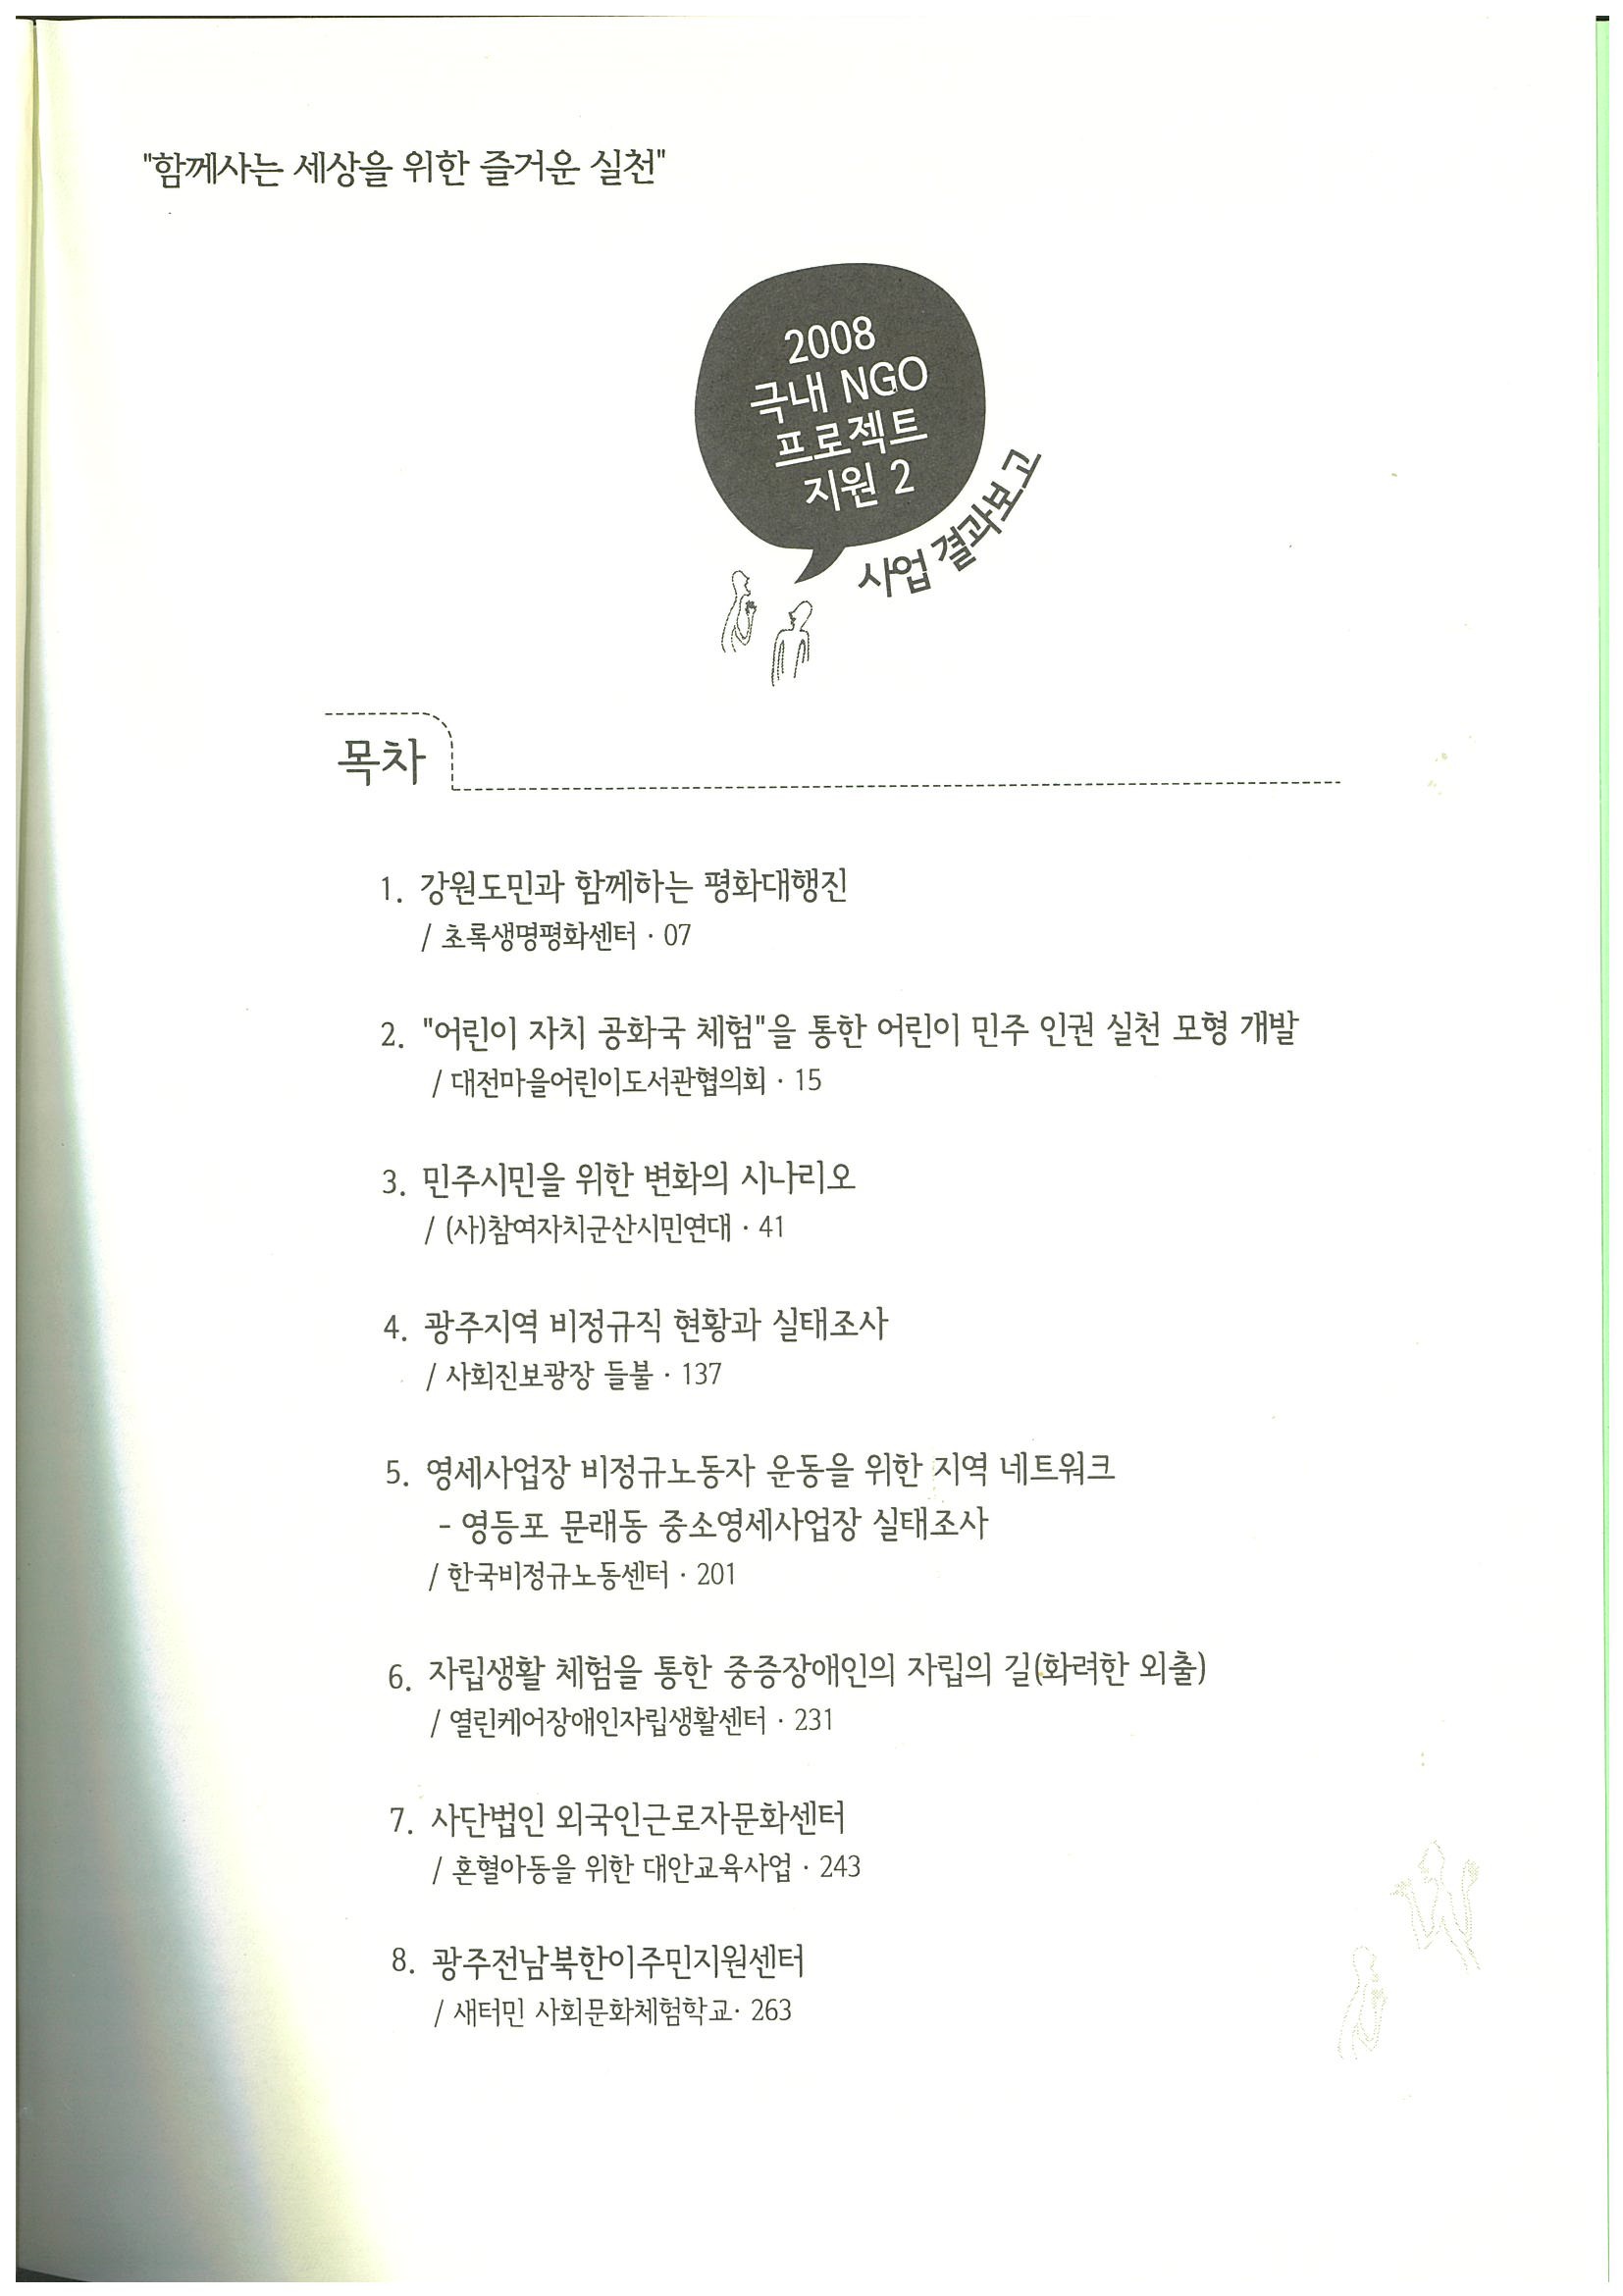 "함께사는 세상을 위한 즐거운 실천"
2008
국내 NGO
프로젝트
지원 2
사업 결과보고
목차
1. 강원도민과 함께하는 평화대행진
/ 초록생명평화센터 · 07
2. "어린이 자치 공화국 체험"을 통한 어린이 민주 인권 실천 모형 개발
/ 대전마을어린이도서관협의회 · 15
3. 민주시민을 위한 변화의 시나리오
/ (사)참여자치군산시민연대 · 41
4. 광주지역 비정규직 현황과 실태조사
/ 사회진보광장 들불 · 137
5. 영세사업장 비정규노동자 운동을 위한 지역 네트워크
- 영등포 문래동 중소영세사업장 실태조사
/ 한국비정규노동센터 · 201
6. 자립생활 체험을 통한 중증장애인의 자립의 길(화려한 외출)
/ 열린케어장애인자립생활센터 · 231
7. 사단법인 외국인근로자문화센터
/ 혼혈아동을 위한 대안교육사업 · 243
8. 광주전남북한이주민지원센터
/ 새터민 사회문화체험학교· 263